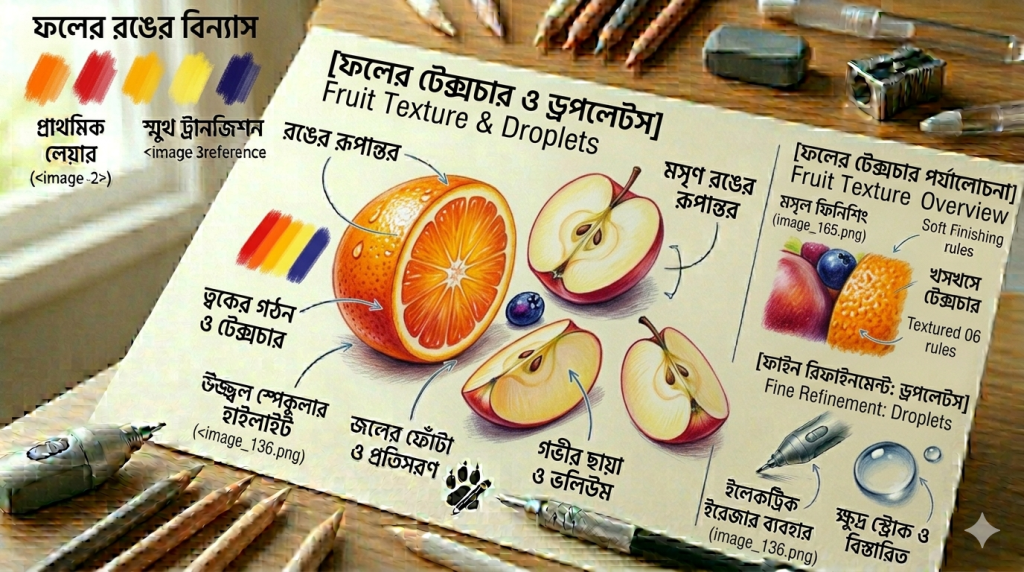 ফলের রঙের বিন্যাস
প্রাথমিক
লেয়ার
(<image -2>)
স্মুথ ট্রানজিশন
<image 3reference
[ফলের টেক্সচার ও ড্রপলেটস]
Fruit Texture & Droplets
রঙের রূপান্তর
মসৃণ রঙের
রূপান্তর
ত্বকের গঠন
ও টেক্সচার
উজ্জ্বল স্পেকুলার
হাইলাইট
(<image_136.png)
জলের ফোঁটা
ও প্রতিসরণ
গভীর ছায়া
ও ভলিউম
[ফলের টেক্সচার পর্যালোচনা]
Fruit Texture Overview
মসৃল ফিনিশিং
(image_165.png)
Soft Finishing
rules
খসখসে
টেক্সচার
Textured 06
rules
[ফাইন রিফাইনমেন্ট: ড্রপলেটস]
Fine Refinement: Droplets
ইলেকট্রিক
ইরেজার ব্যবহার
(image_136.png)
ক্ষুদ্র স্ট্রোক ও
বিস্তারিত